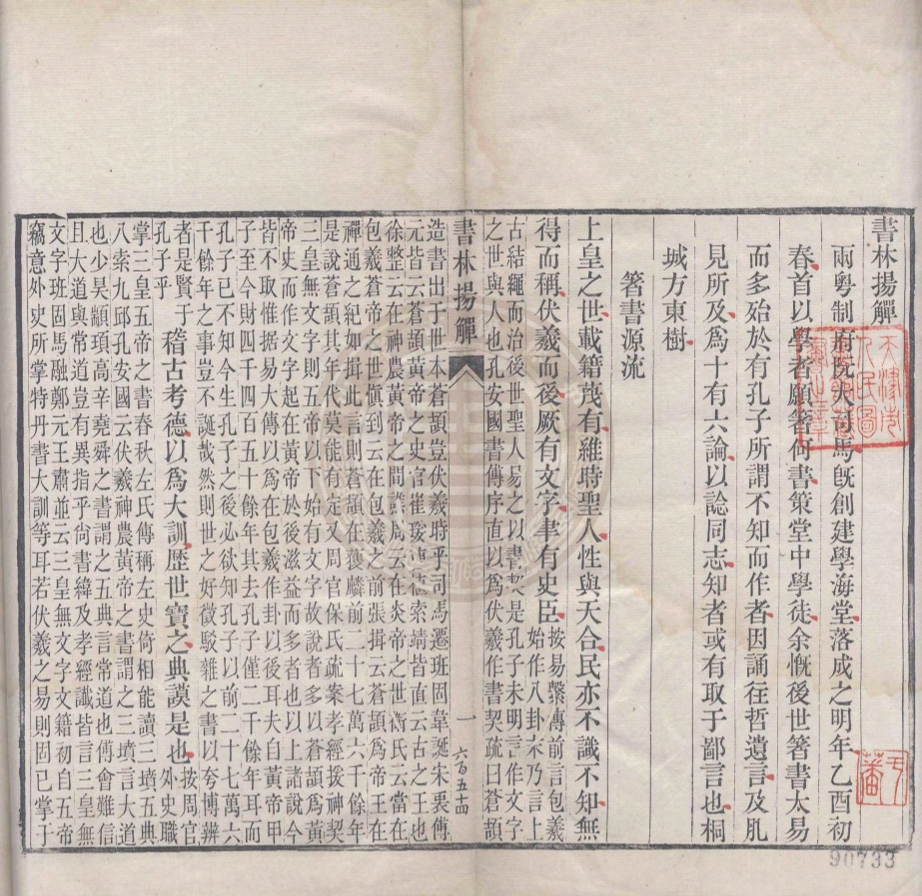 書林揚觶
兩粵制府阮大司馬旣創建學海堂落成之明年乙酉初
春首以學者願箸何書策堂中學徒余慨後世箸書太易
而多殆於有孔子所謂不知而作者因誦往哲遺言及肊
見所及爲十有六論以諗同志知者或有取于鄙言也桐
城方東樹
箸書源流
上皇之世載籍蔑有維時聖人性與天合民亦不識不知無
得而稱伏羲而後厥有文字聿有史臣按易繫傳前言包羲
始作八卦末乃言上
古結繩而治後世聖人易之以書契是孔子未明言作文字
之世與人也孔安國書傳序直以爲伏羲作書契疏曰蒼頡
書林揚觶
一
六百五十四
造書出于世本蒼頡豈伏羲時乎司馬遷班固韋誕宋衷傅
元皆云蒼頡黃帝之史官崔瑗曹植索靖皆直云古之王也
徐整云在神農黃帝之間譙周云在炎帝之世衞氏云當在
包羲蒼帝之世愼到云在包羲之前張揖云蒼頡爲帝王在
禪通之紀如揖此言則蒼頡在獲麟前二十七萬六千餘年
是說蒼頡其年代莫能有定又周官保氏疏案孝經援神契
三皇無文字則五帝以下始有文字故說者多以蒼頡爲黃
帝史而作文字起在黃帝於後滋益而多者也以上諸說今
皆不取惟據易大傳以爲在包羲作卦以後耳夫自黃帝甲
子至今財四千四百五十餘年其去孔子僅二千餘年耳而
孔子已不知今生孔子之後必欲知孔子以前二十七萬六
千餘年之事豈不誕哉然則世之好徵駁雜之書以夸博辨
者是賢于
孔子乎
稽古考德以爲大訓歷世寶之典謨是也按周官
外史職
掌三皇五帝之書春秋左氏傳稱左史倚相能讀三墳五典
八索九邱孔安國云伏羲神農黃帝之書謂之三墳言大道
也少昊顓頊高辛堯舜之書謂之五典言常道也傅會難信
且大道與常道豈有異指乎尙書緯及孝經讖皆言三皇無
文字班固馬融鄭元王肅並云三皇無文字文籍初自五帝
竊意外史所掌特丹書大訓等耳若伏羲之易則固已掌于
90733